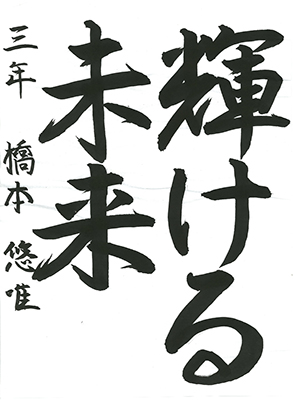 輝ける
未来
三年 橋本 悠唯